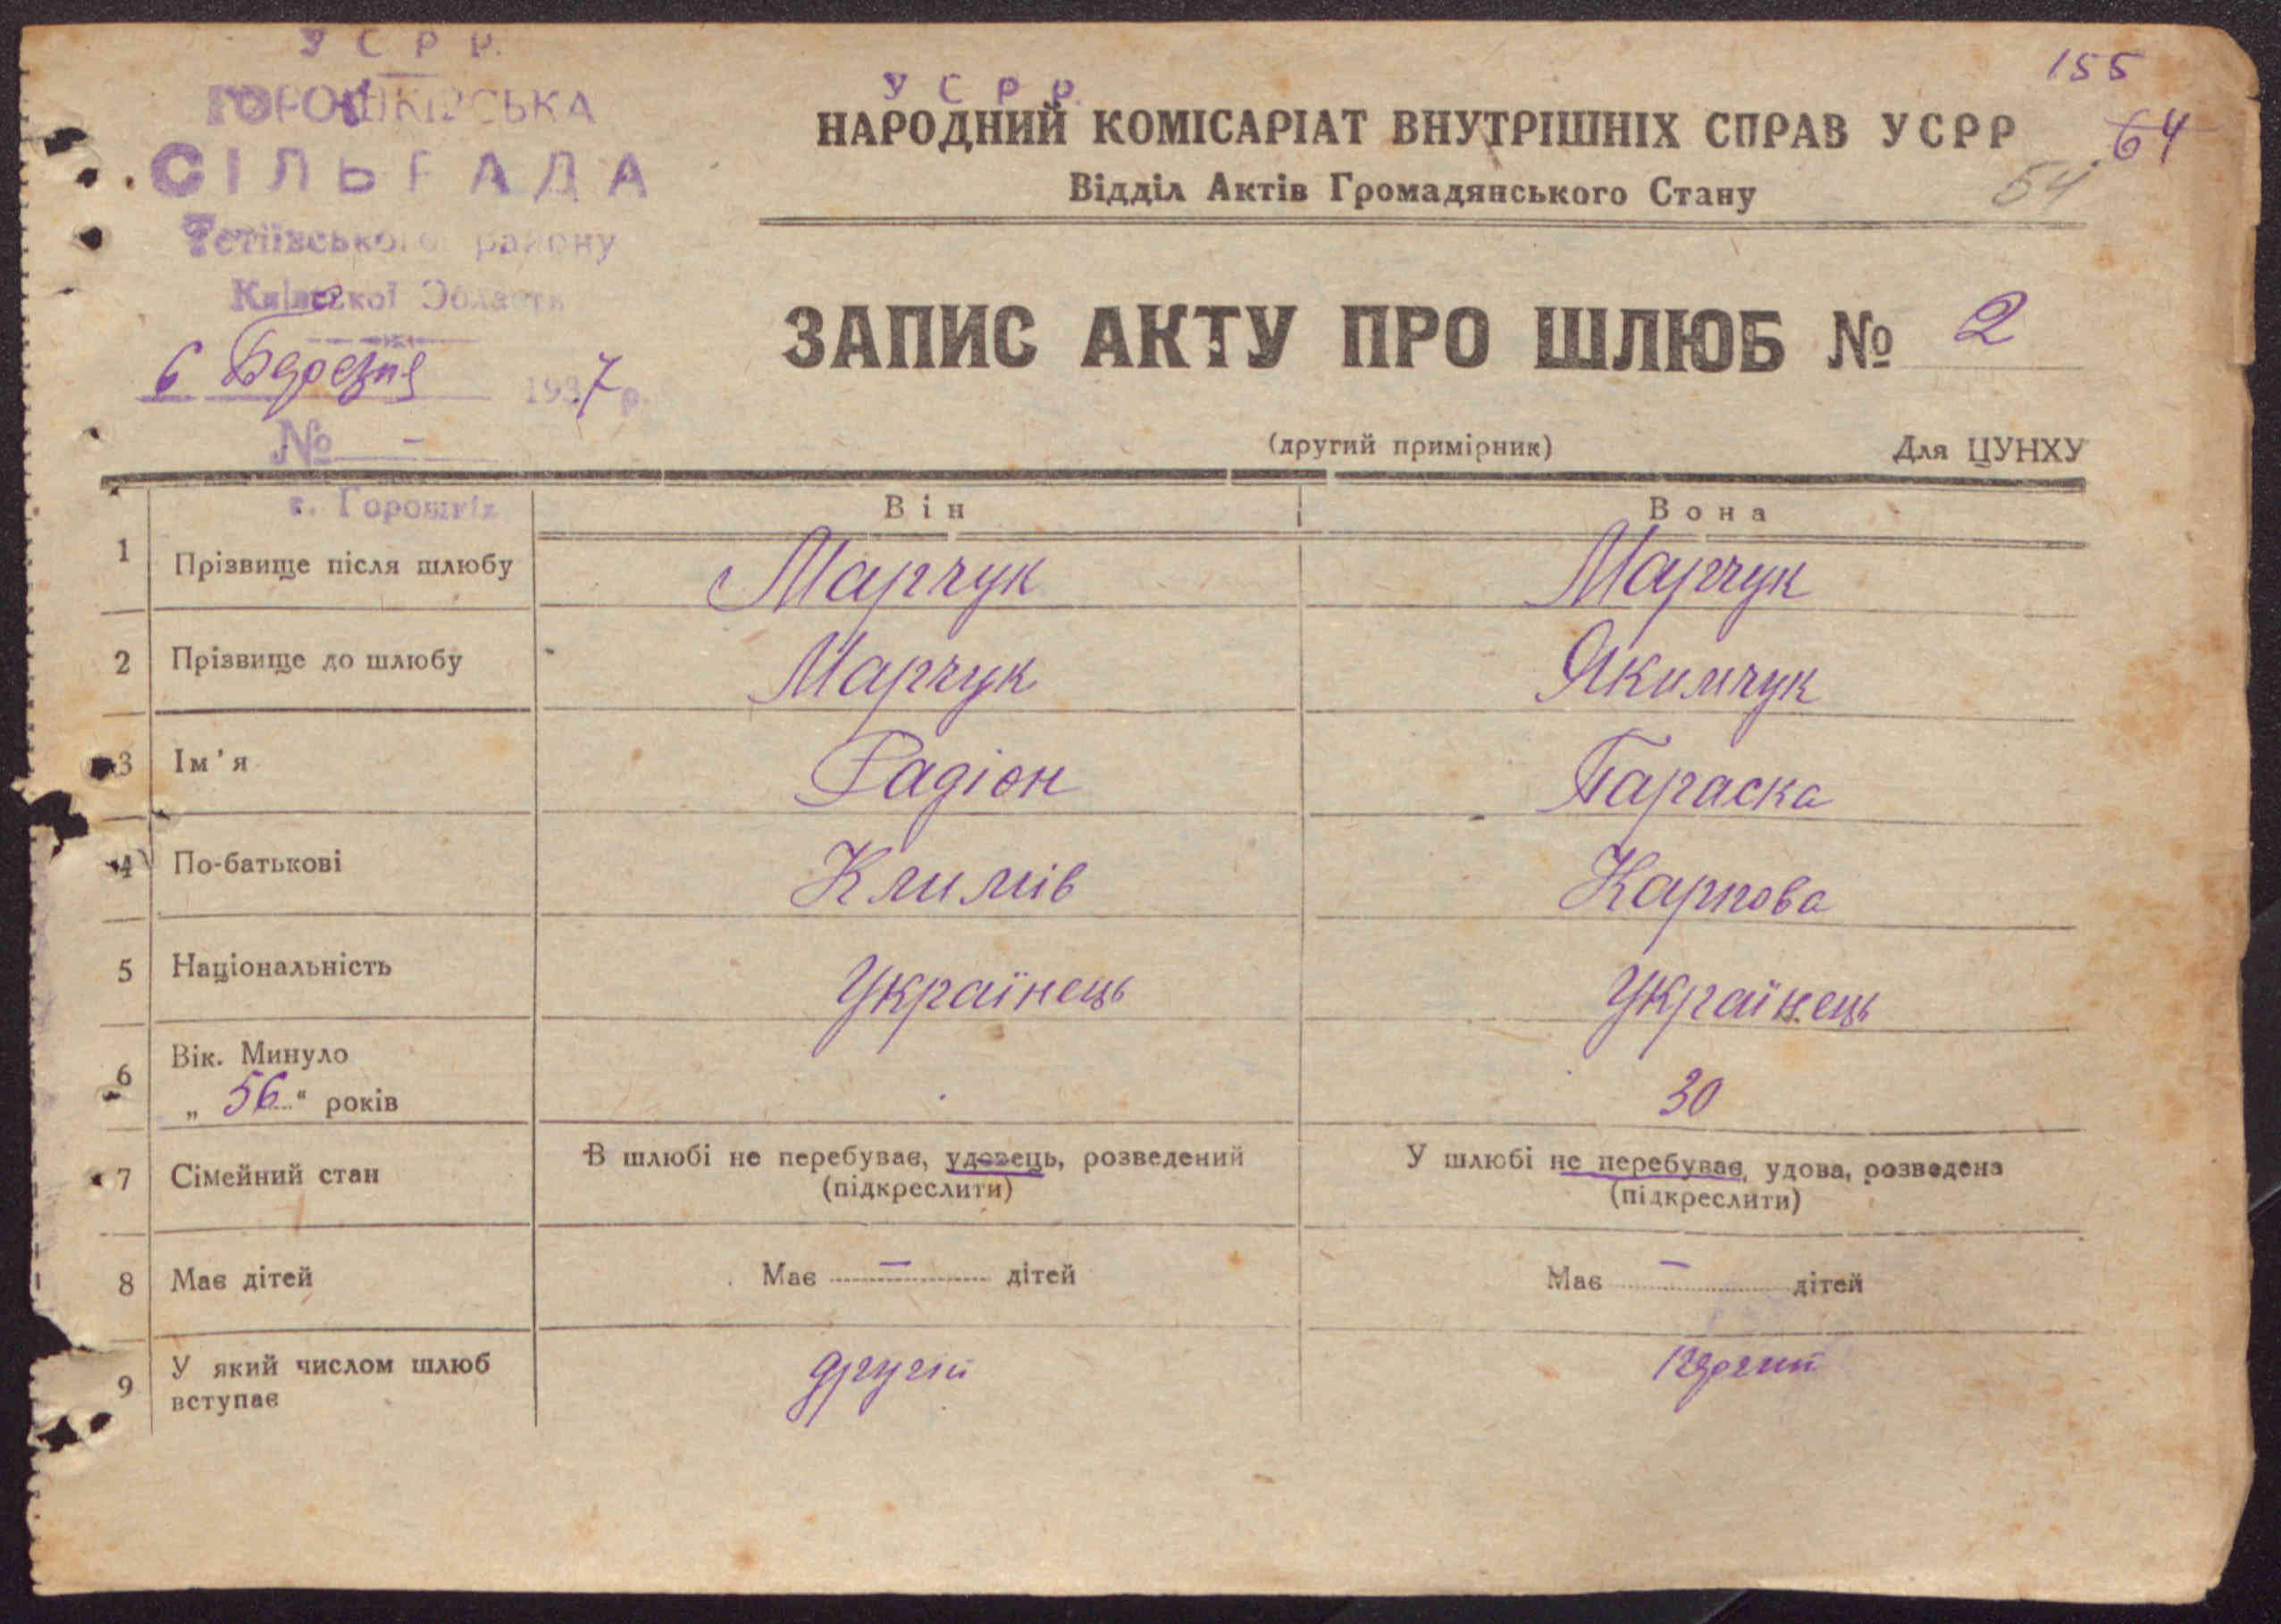 У С Р Р.
ГОРОШКІВСЬКА
СІЛЬРАДА
Тетіївського району
Київської Области
6 Березня 1937 р.
№ -
с. Горошків
155
У С Р Р.
НАРОДНИЙ КОМІСАРІАТ ВНУТРІШНІХ СПРАВ УСРР
64
Відділ Актів Громадянського Стану
54
ЗАПИС АКТУ ПРО ШЛЮБ № 2
(другий примірник) Для ЦУНХУ
Він Вона
1 Прізвище після шлюбу Марчук Марчук
2 Прізвище до шлюбу Марчук Якимчук
3 Ім'я Радіон Параска
4 По-батькові Климів Карпова
5 Національність Українець Українець
6 Вік. Минуло
„ 56 " років 30
7 Сімейний стан В шлюбі не перебуває, удовець, розведений У шлюбі не перебуває, удова, розведена
(підкреслити) (підкреслити)
8 Має дітей Має - дітей Має - дітей
9 У який числом шлюб
вступає другій